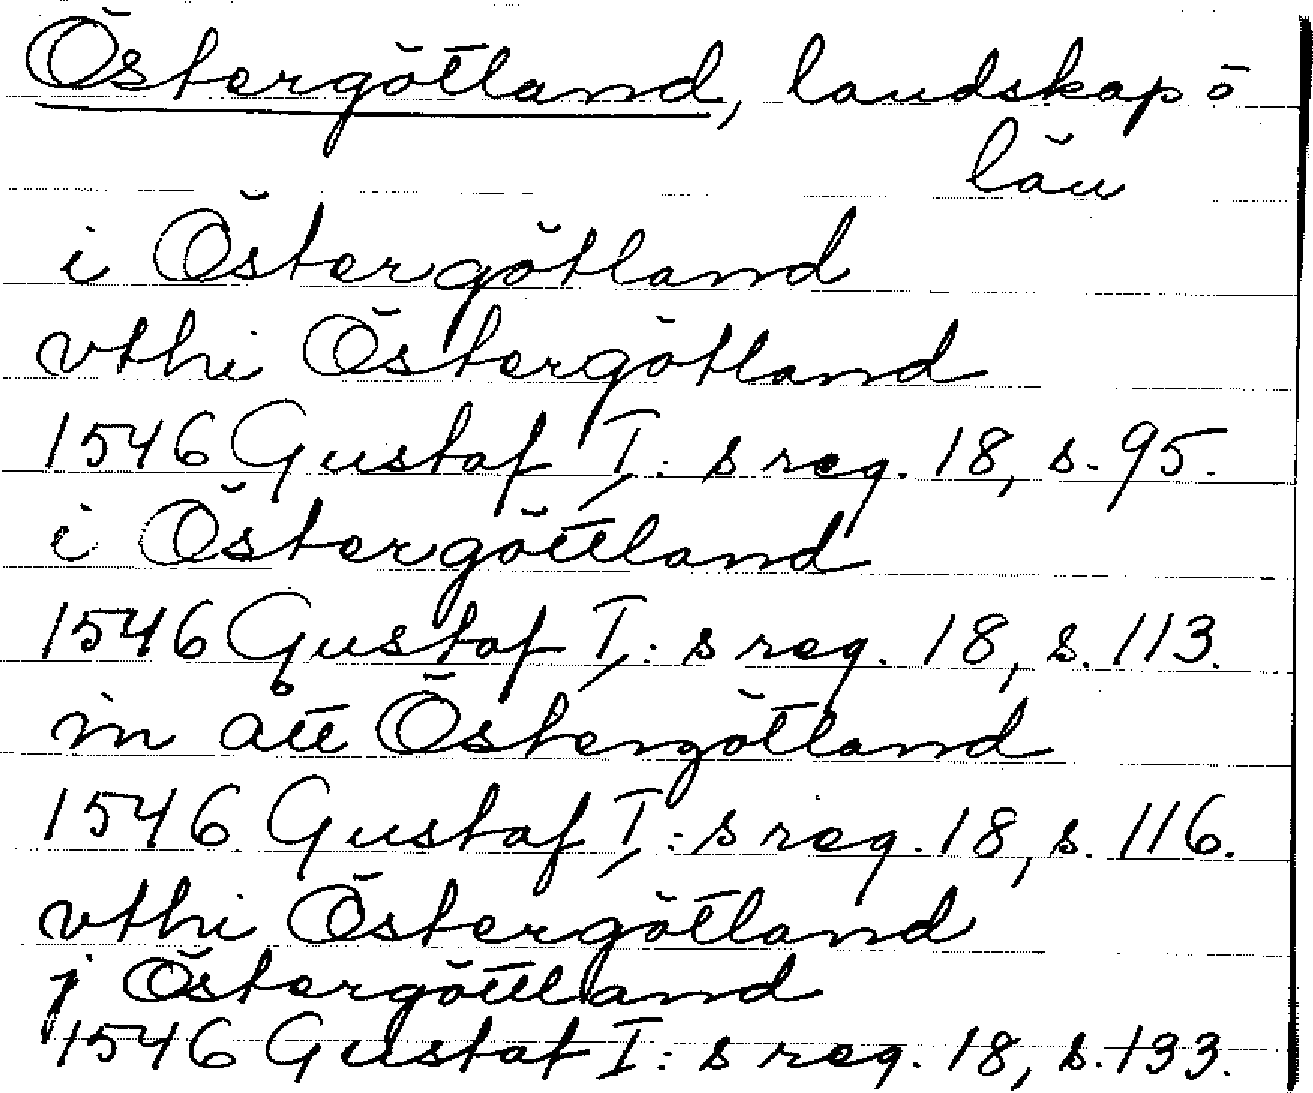 Östergötland, landskap o
län
i Östergötland
vthi Östergötland
1546 Gustaf I: s reg. 18, s. 95.
i Östergöttland
1546 Gustaf I: s reg. 18, s. 113.
in ått Östergötland
1546 Gustaf I: s reg. 18, s. 116.
vthi Östergötland
j Östergöttland
1546 Gustaf I: s reg. 18, s. 133.